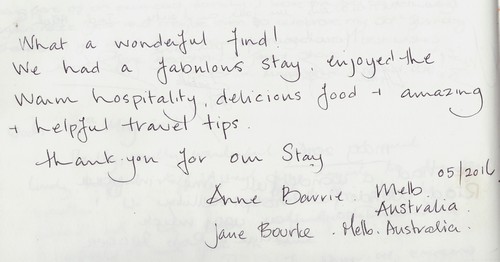 What a wonderful find!
We had a fabulous stay, enjoyed the
warm hospitality, delicious food + amazing
+ helpful travel tips.
Thank you for our Stay
05/2016
Anne Bourke Melb.
Australia.
Jane Bourke. Melb. Australia.